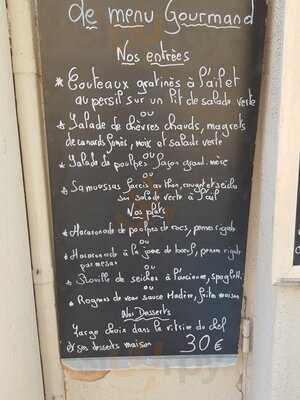 de menu Gourmand
Nos entrèes
* Couteaux gratinès à l'ail et
au persil sur un lit de salade verte
ou
* Salade de chèvres chauds, magrets
de canards fumès, noix et salade verte
ou
* Salade de poulpes façon grand-mère
ou
* Samoussas farcis au thon, rouget et seiche
sur salade verte à l'ail
Nos plats
* Macaronade de poulpes de rocs, pennes rigate
ou
* Macaronade à la joue de bœuf, pennes rigate
parmesan
ou
* Rouille de seiches à l'ancienne, spaghetti
ou
* Rognons de veau sauce Madère, frites maison
Nos Desserts
Large choix dans la vitrine du chef
et ses desserts maison 30€